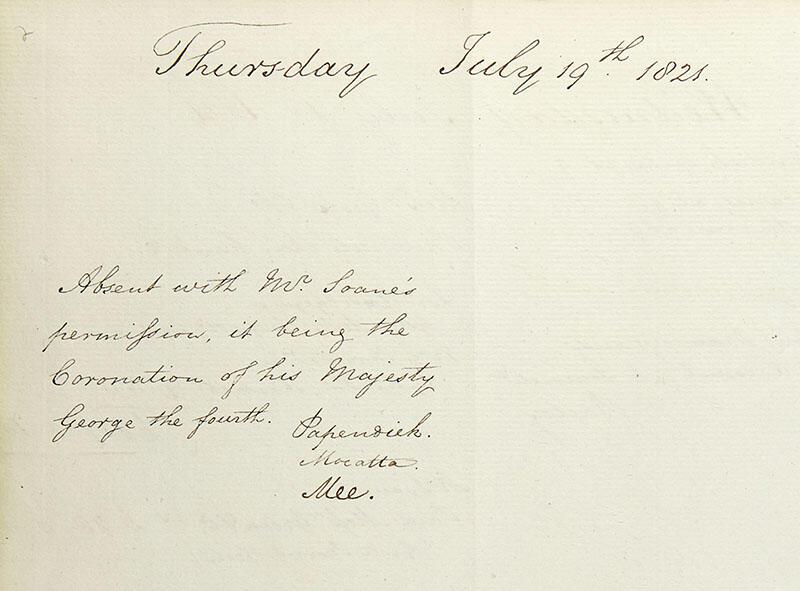 Thursday July 19th. 1821.
Absent with Mr. Soane's
permiſsion, it being the
Coronation of his Majesty
George the fourth.
Papendiek.
Mocatta.
Mee.